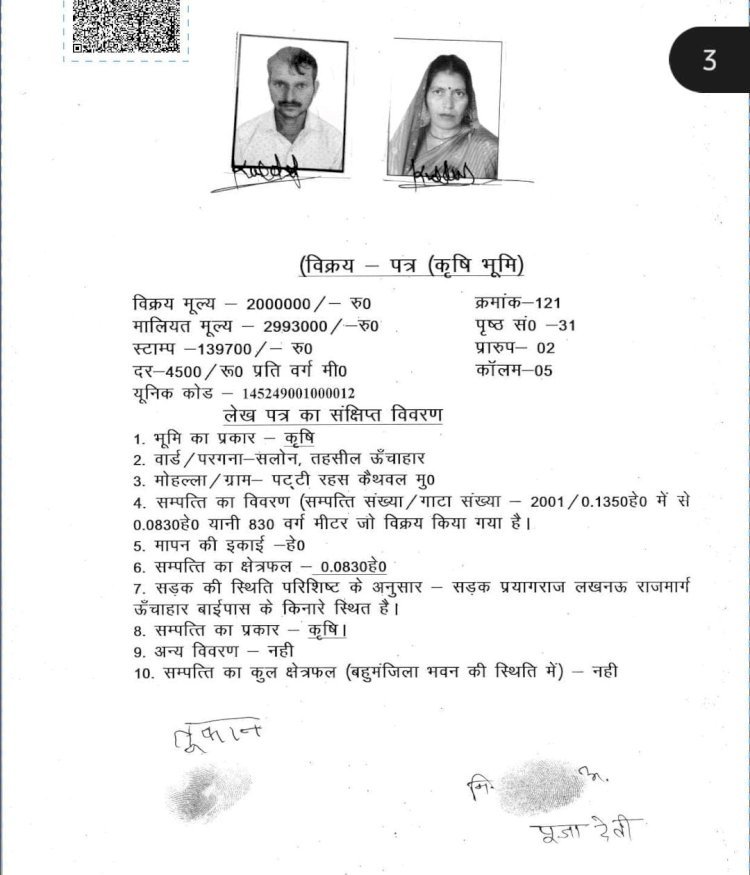 3
(विक्रय – पत्र (कृषि भूमि)
विक्रय मूल्य – 2000000/– रु0 क्रमांक–121
मालियत मूल्य – 2993000/–रु0 पृष्ठ सं0 –31
स्टाम्प –139700/– रु0 प्रारुप– 02
दर–4500/रू0 प्रति वर्ग मी0 कॉलम–05
यूनिक कोड – 145249001000012
लेख पत्र का संक्षिप्त विवरण
1. भूमि का प्रकार – कृषि
2. वार्ड/परगना–सलोन, तहसील ऊँचाहार
3. मोहल्ला/ग्राम– पट्टी रहस कैथवल मु0
4. सम्पत्ति का विवरण (सम्पत्ति संख्या/गाटा संख्या – 2001/0.1350हे0 में से
0.0830हे0 यानी 830 वर्ग मीटर जो विक्रय किया गया है।
5. मापन की इकाई –हे0
6. सम्पत्ति का क्षेत्रफल – 0.0830हे0
7. सड़क की स्थिति परिशिष्ट के अनुसार – सड़क प्रयागराज लखनऊ राजमार्ग
ऊँचाहार बाईपास के किनारे स्थित है।
8. सम्पत्ति का प्रकार – कृषि।
9. अन्य विवरण – नही
10. सम्पत्ति का कुल क्षेत्रफल (बहुमंजिला भवन की स्थिति में) – नही
तूफान
नि. अ.
पूजा देवी